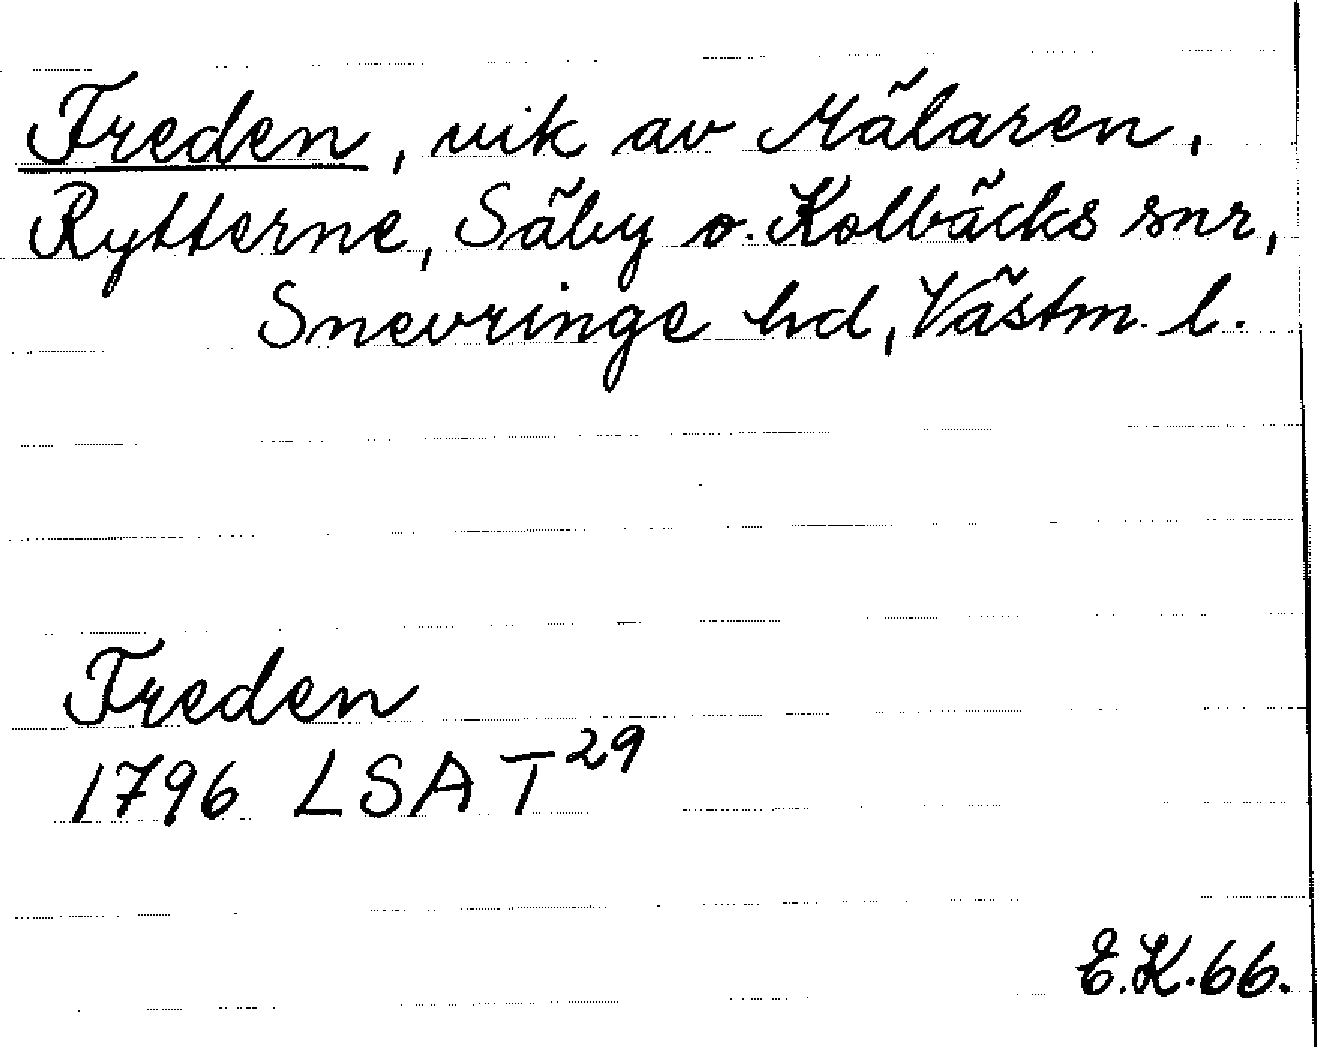 Freden, vik av Mälaren,
Rytterne, Säby o. Kolbäcks snr,
Snevringe hd, Västm. l.
Freden
1796 LSA T²⁹
E.K.66.